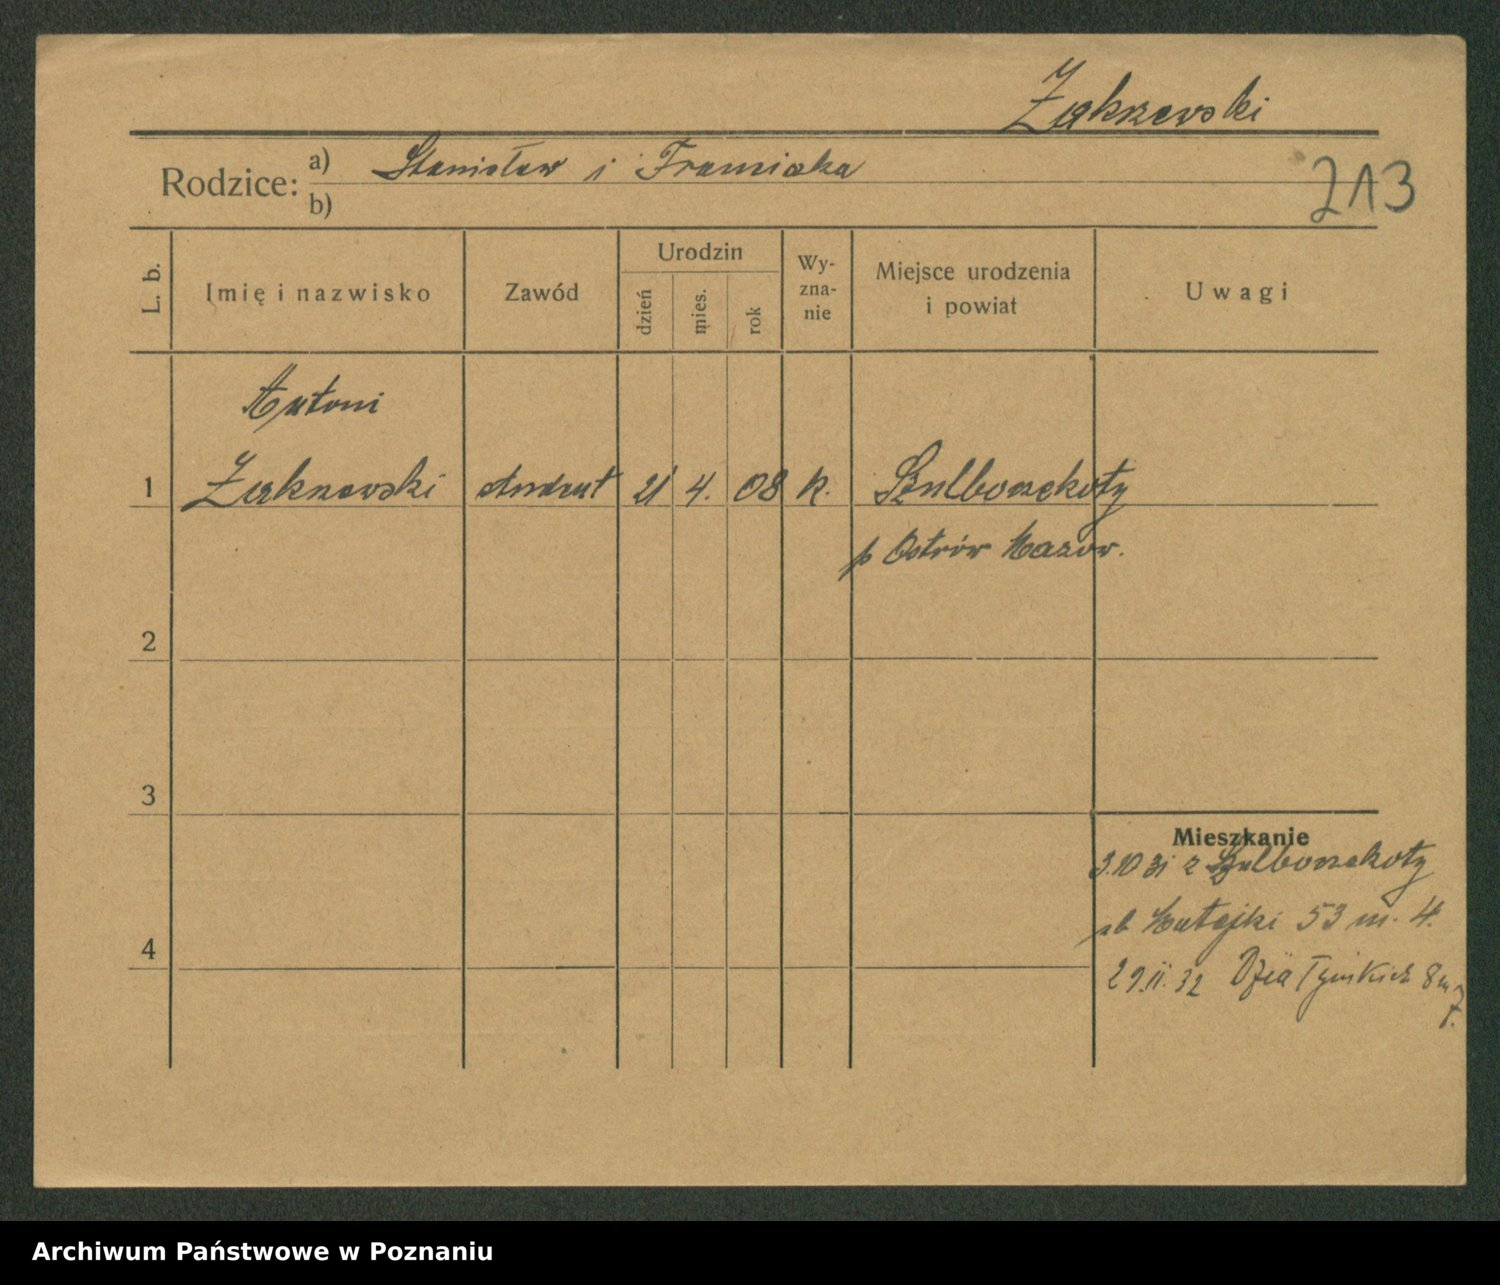 Zakrzewski
Rodzice: a) Stanisław i Franciszka
b)
213
L. b.
Imię i nazwisko
Zawód
Urodzin
dzień
mies.
rok
Wy-
zna-
nie
Miejsce urodzenia
i powiat
Uwagi
Antoni
1 Zakrzewski student 21 4. 08 k. Szulborzekoty
p Ostrów Mazow.
2
3
Mieszkanie
3.10 31 z Szulborzekoty
ab Matejki 53 m. 4.
4
29.II.32 Działyńskich 8 m 7.
Archiwum Państwowe w Poznaniu